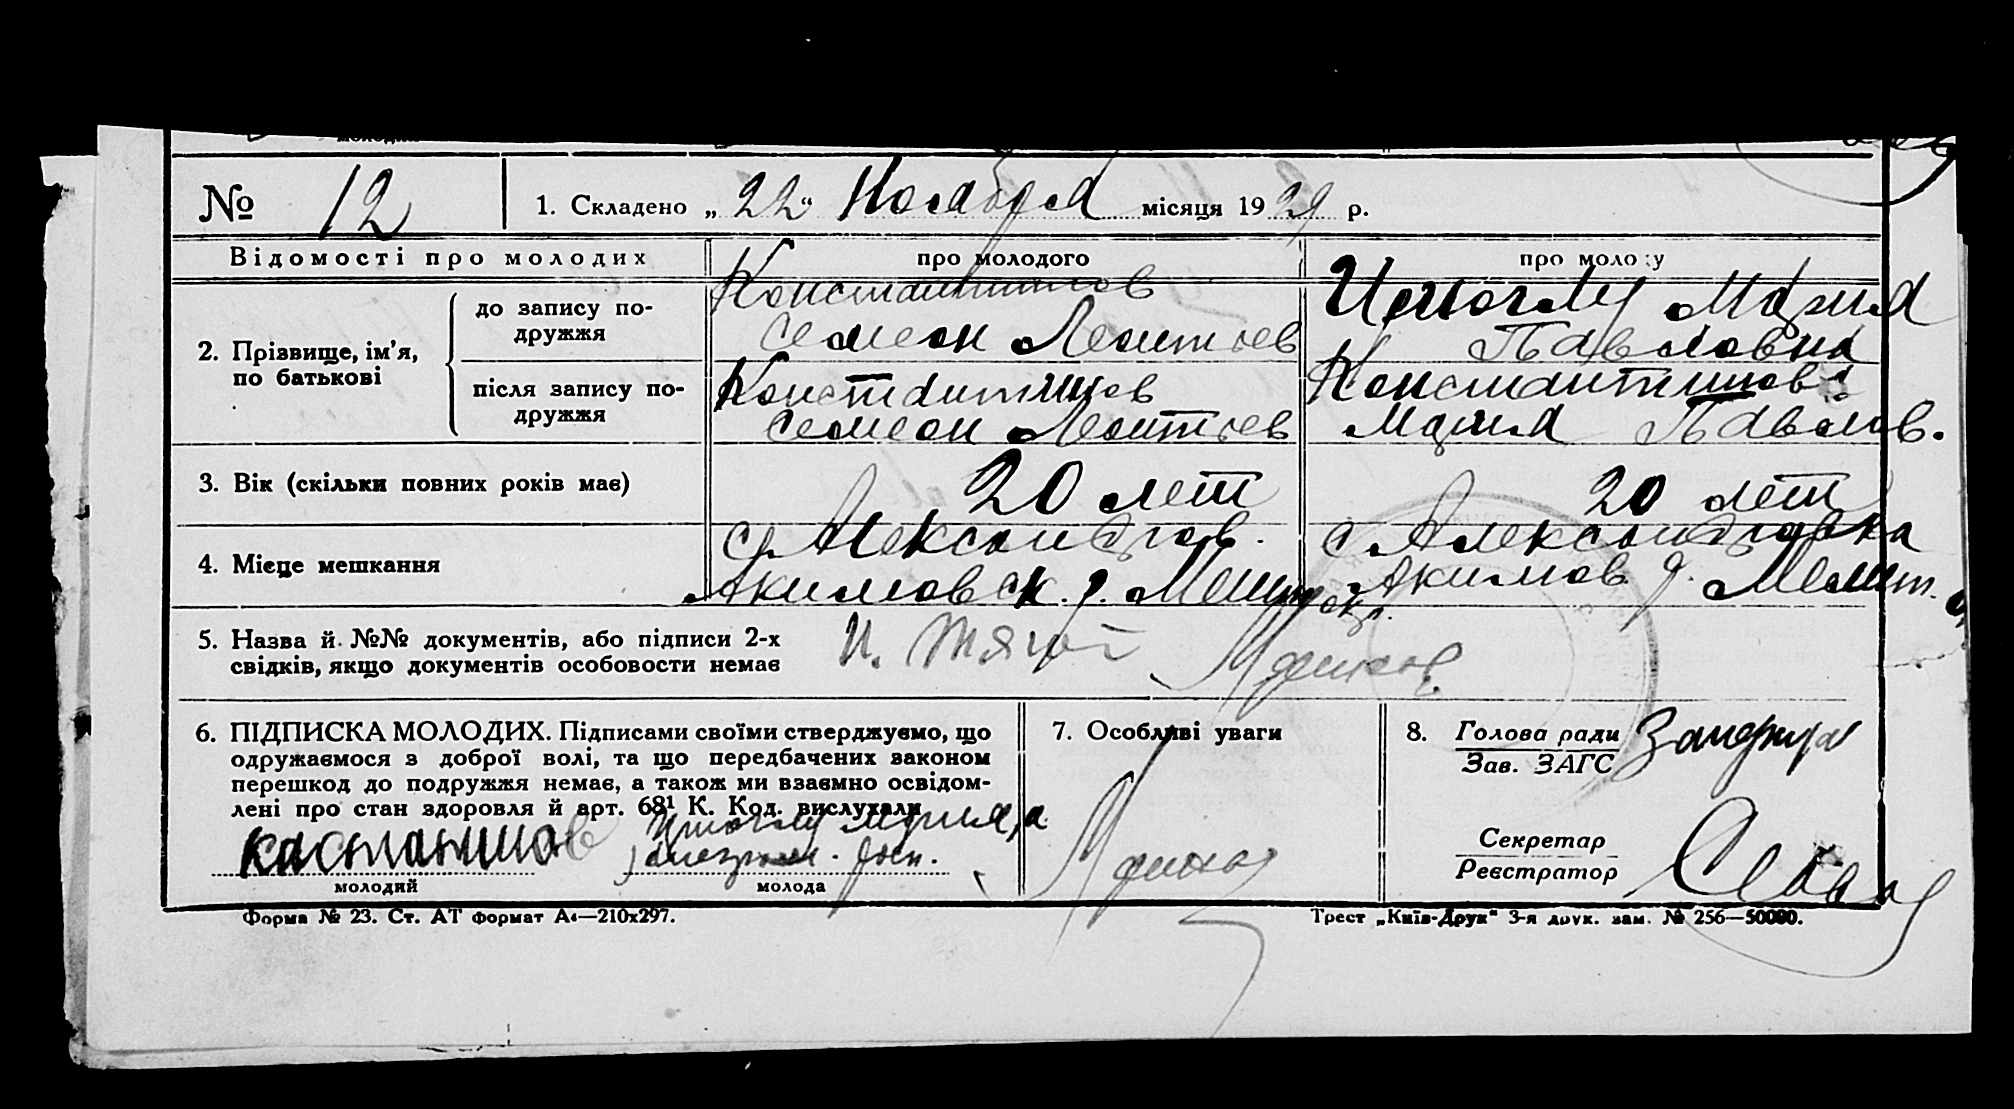 № 12 1. Складено „22“ Ноября місяця 1929 р.
Відомості про молодих про молодого про молоду
2. Прізвище, ім’я, по батькові
до запису по-
дружжя
Константинов
Семен Леонтьев
Мария
Павловна
після запису по-
дружжя
Константинов
Семен Леонтьев
Константинова
Мария Павлов.
3. Вік (скільки повних років має) 20 лет 20 лет
4. Місце мешкання
с. Александров.
Акимовск. р. Мелитоп. окр.
с Александровка
Акимов. р. Мелит.
5. Назва й №№ документів, або підписи 2-х
свідків, якщо документів особовости немає
6. ПІДПИСКА МОЛОДИХ. Підписами своїми стверджуємо, що
одружаємося з доброї волі, та що передбачених законом
перешкод до подружжя немає, а також ми взаємно освідом-
лені про стан здоровля й арт. 68¹ К. Код. вислухали
молодий молода
7. Особливі уваги
8. Голова ради
Зав. ЗАГС
Секретар
Реєстратор
Форма № 23. Ст. АТ формат А4—210x297.
Трест „Київ-Друк“ 3-я друк. зам. № 256—50000.